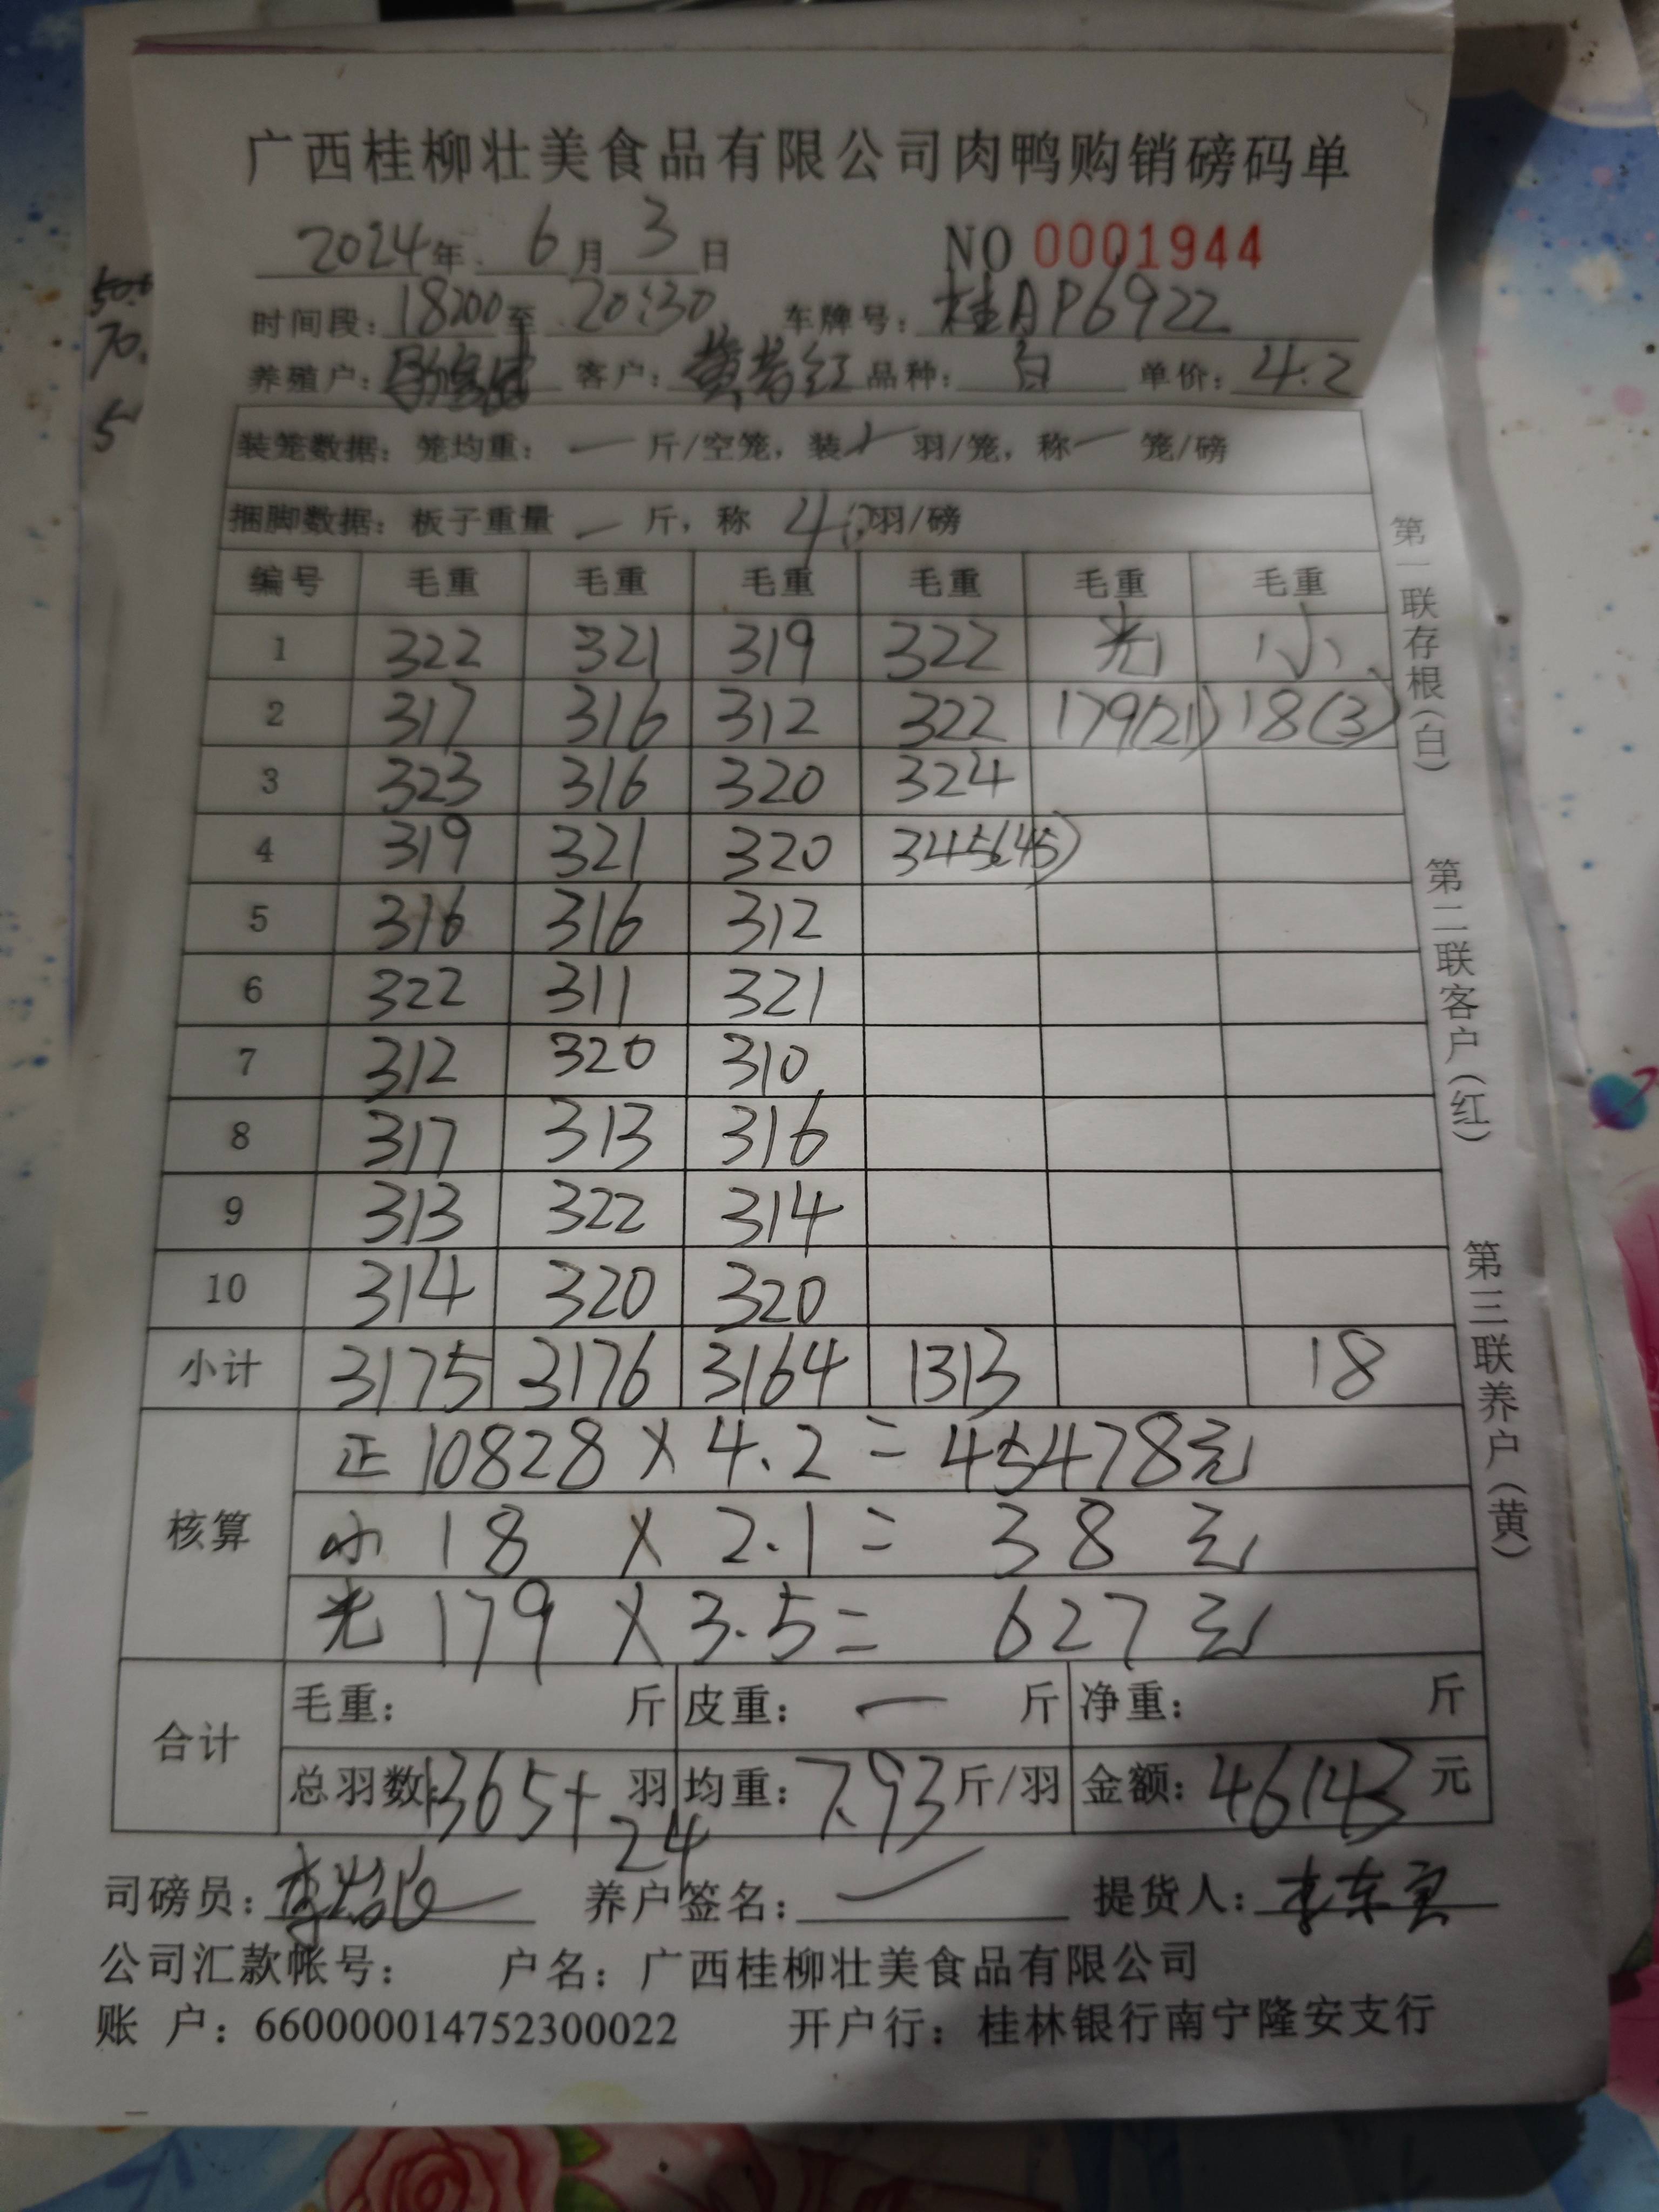 广西桂柳壮美食品有限公司肉鸭购销磅码单
2024年 6月 3日 NO 0001944
时间段：18:00至 20:30 车牌号：桂AP6922
养殖户： 客户：黄 红 品种：白 单价：4.2
装笼数据：笼均重：— 斤/空笼，装 — 羽/笼，称 — 笼/磅
捆脚数据：板子重量 — 斤，称 40 羽/磅
编号 毛重 毛重 毛重 毛重 毛重 毛重
1 322 321 319 322 光 小
2 317 316 312 322 179(21) 18(3)
3 323 316 320 324
4 319 321 320 345(45)
5 316 316 312
6 322 311 321
7 312 320 310
8 317 313 316
9 313 322 314
10 314 320 320
小计 3175 3176 3164 1313 18
核算
正 10828 × 4.2 = 45478元
小 18 × 2.1 = 38 元
光 179 × 3.5 = 627 元
合计
毛重： 斤 皮重：— 斤 净重： 斤
总羽数：1365+24 羽 均重：7.93斤/羽 金额：46143 元
司磅员：李 养户签名： 提货人：李东
公司汇款帐号： 户名：广西桂柳壮美食品有限公司
账 户：660000014752300022 开户行：桂林银行南宁隆安支行
第一联存根(白)
第二联客户(红)
第三联养户(黄)
70.
5